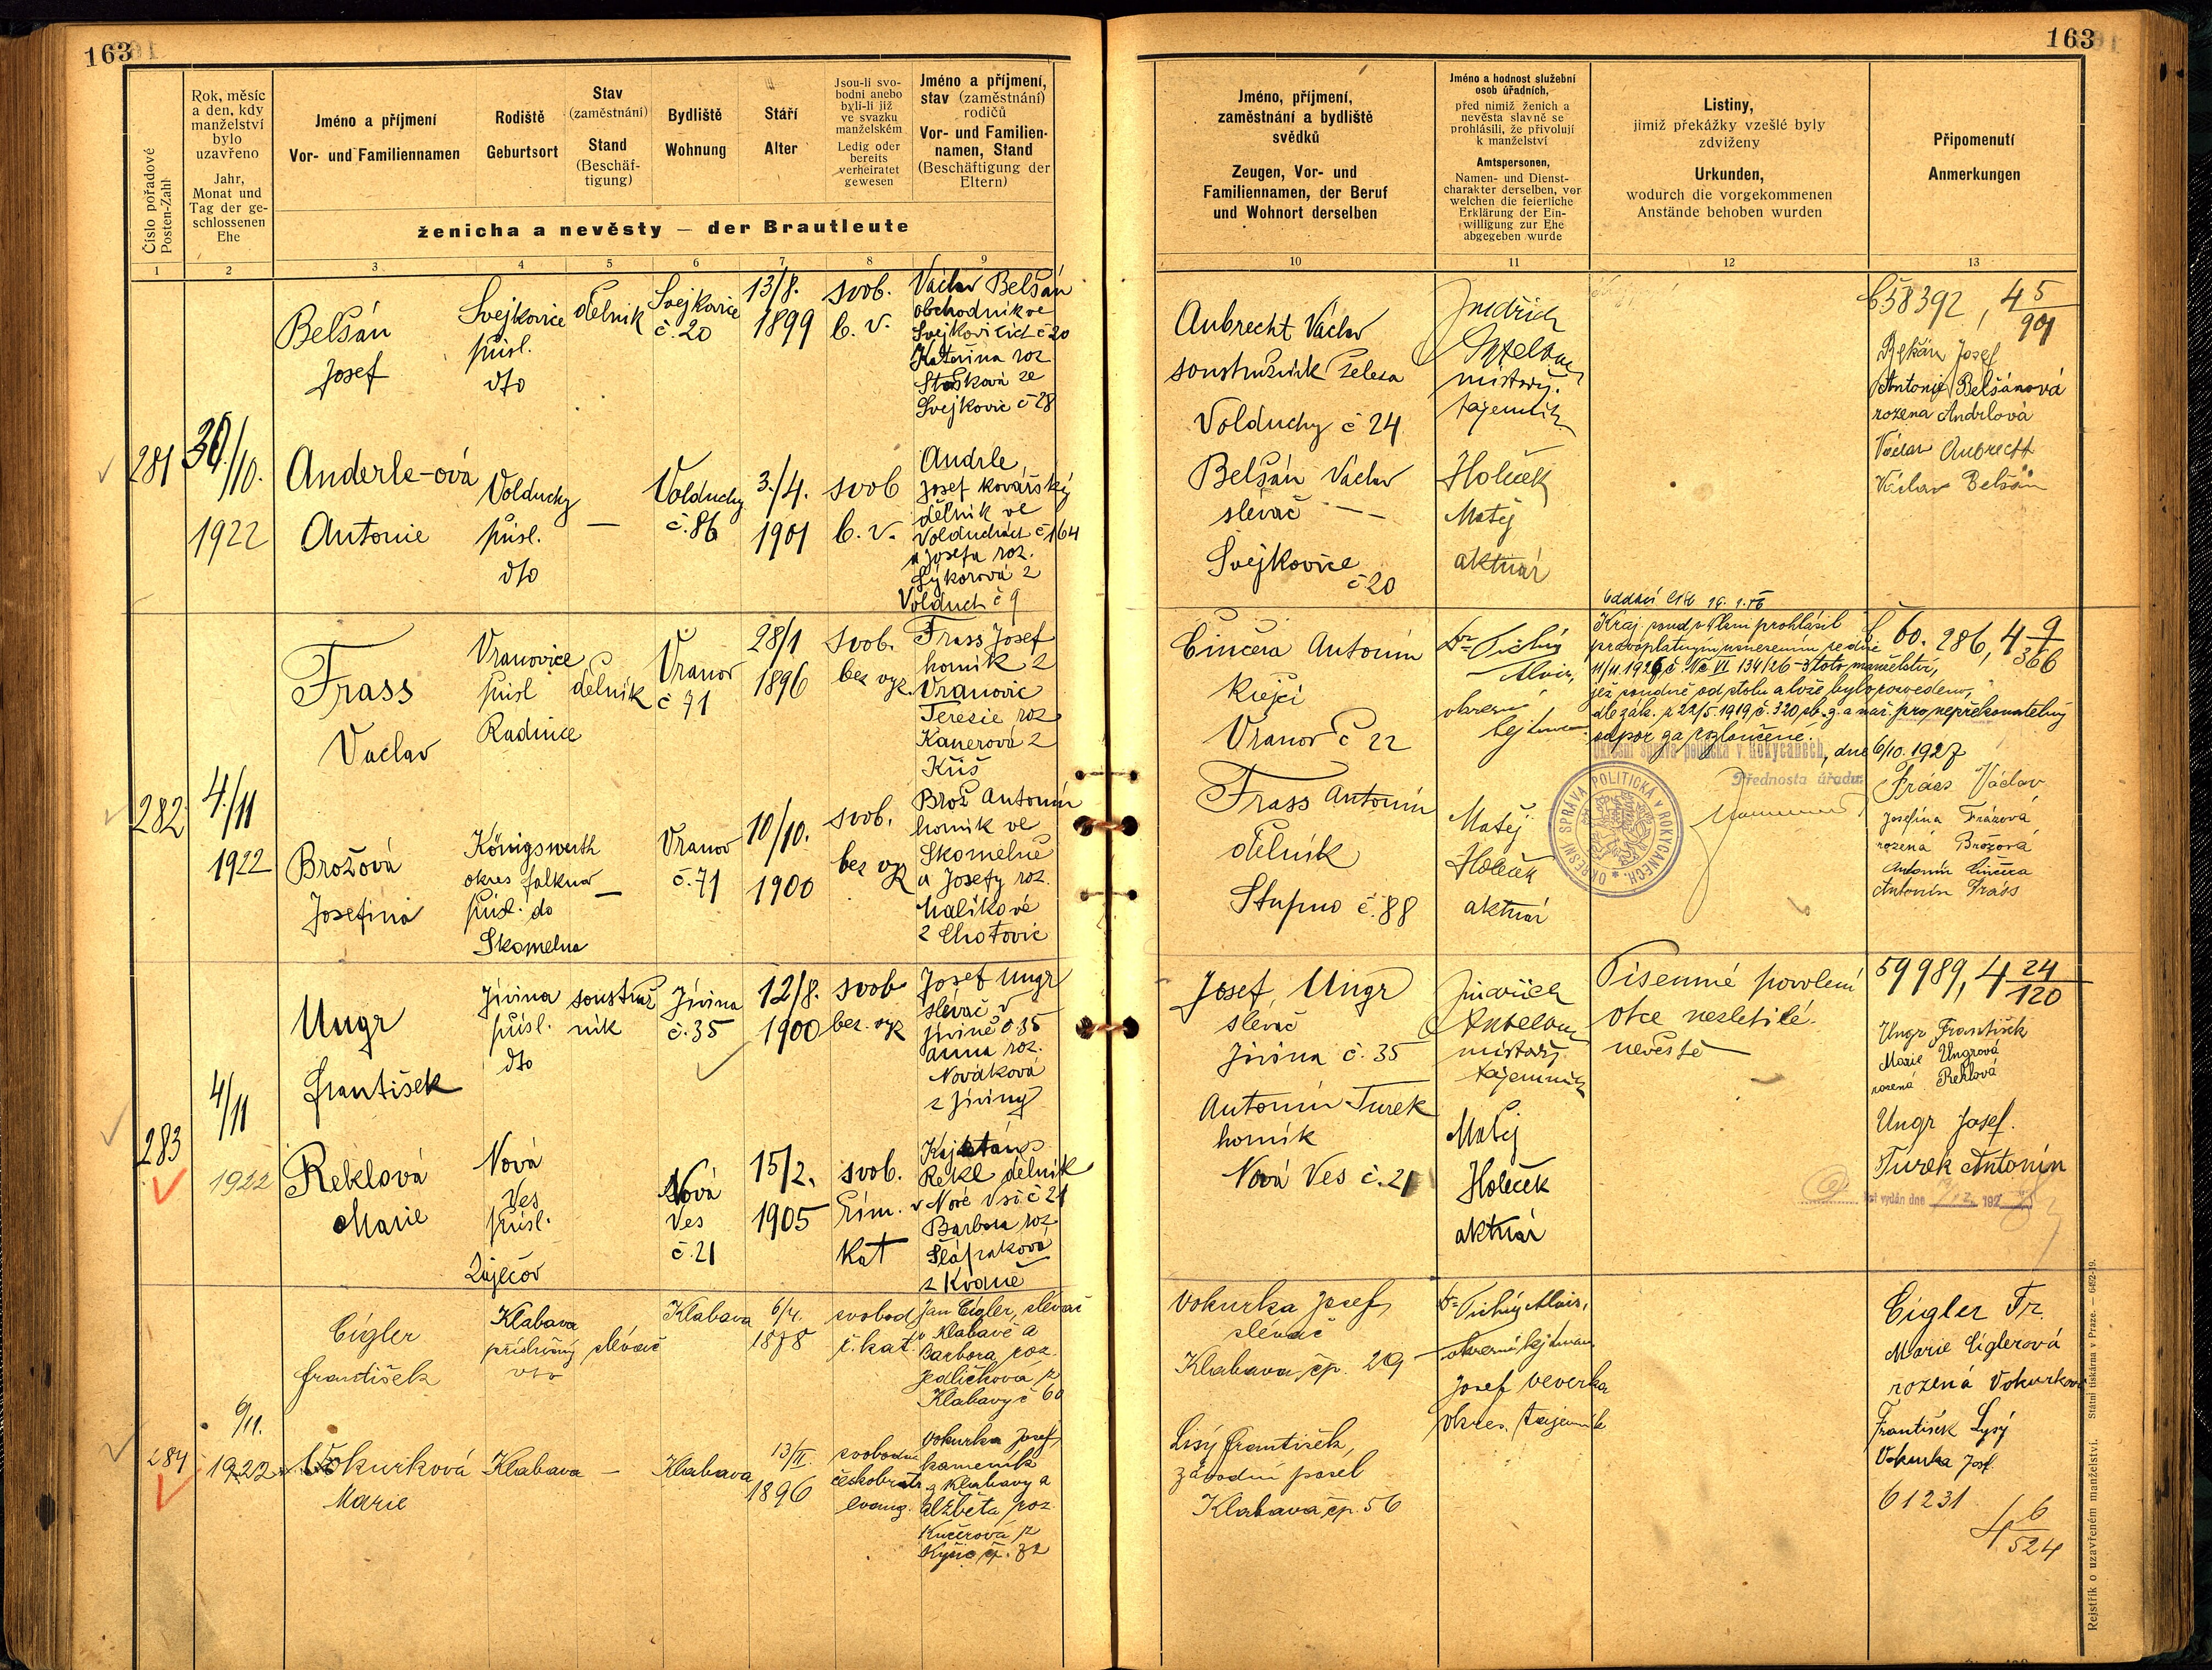 163
163
Číslo pořadové
Posten-Zahl
Rok, měsíc
a den, kdy
manželství
bylo
uzavřeno
Jahr,
Monat und
Tag der ge-
schlossenen
Ehe
Jméno a příjmení
Vor- und Familiennamen
Rodiště
Geburtsort
Stav
(zaměstnání)
Stand
(Beschäf-
tigung)
Bydliště
Wohnung
Stáří
Alter
Jsou-li svo-
bodni anebo
byli-li již
ve svazku
manželském
Ledig oder
bereits
verheiratet
gewesen
Jméno a příjmení,
stav (zaměstnání)
rodičů
Vor- und Familien-
namen, Stand
(Beschäftigung der
Eltern)
ženicha a nevěsty — der Brautleute
Jméno, příjmení,
zaměstnání a bydliště
svědků
Zeugen, Vor- und
Familiennamen, der Beruf
und Wohnort derselben
Jméno a hodnost služební
osob úřadních,
před nimiž ženich a
nevěsta slavně se
prohlásili, že přivolují
k manželství
Amtspersonen,
Namen- und Dienst-
charakter derselben, vor
welchen die feierliche
Erklärung der Ein-
willigung zur Ehe
abgegeben wurde
Listiny,
jimiž překážky vzešlé byly
zdviženy
Urkunden,
wodurch die vorgekommenen
Anstände behoben wurden
Připomenutí
Anmerkungen
1 2 3 4 5 6 7 8 9 10 11 12 13
281
30./10.
1922
Belšán
Josef
Svejkovice
přísl.
dto
dělník
Svejkovice
č. 20
13/8.
1899
svob.
b. v.
Václav Belšán
obchodník ve
Svejkovicích č 20
Kateřina roz
Stašková ze
Svejkovic č 28
Anderle-ová
Antonie
Volduchy
přísl.
dto
—
Volduchy
č. 86
3./4.
1901
svob
b. v.
Andrle
Josef kovářský
dělník ve
Volduchách č 164
a Josefa roz.
Sýkorová z
Volduch č 9
Aubrecht Václav
soustružník železa
Volduchy č 24
Belšán Václav
slévač
Svejkovice
č 20
Jindřich
místodrž.
tajemník
Holeček
Matěj
aktuár
658392, 4 5/901
Belšán Josef
Antonie Belšánová
rozena Andrlová
Václav Aubrecht
Václav Belšán
282
4./11
1922
Frass
Václav
Vranovice
přísl
Radnice
dělník
Vranov
č 71
28/1
1896
svob.
bez vyz.
Frass Josef
horník z
Vranovic
Terezie roz
Kanerová z
Kříš
Brožová
Josefina
Königswerth
okres Falknov
přísl. do
Skomelna
—
Vranov
č. 71
10/10.
1900
svob.
bez vyz
Brož Antonín
horník ve
Skomelně
a Josefy roz.
Malíkové
z Chotovic
Činčera Antonín
Krejčí
Vranov č 22
Frass Antonín
dělník
Stupno č. 88
Dr Tichý
Alois,
okresní
hejtman
Matěj
Holeček
aktuár
Kraj. soud v Plzni prohlásil
pravoplatným usnesením ze dne
11/11. 1926 č. Nc VI 134/26-3 toto manželství,
jež soudně od stolu a lože bylo rozvedeno,
dle zák. z 22/5 1919 č. 320 sb. z. a nař. pro nepřekonatelný
odpor za rozloučené.
Okresní správa politická v Rokycanech, dne 6/10. 1927
Přednosta úřadu:
OKRESNÍ SPRÁVA POLITICKÁ V ROKYCANECH.
60. 286, 4 9/366
Fráss Václav
Josefina Frásová
rozená Brožová
Antonín Činčera
Antonín Fráss
283
4/11
1922
Ungr
František
Jívina
přísl.
dto
soustruž
ník
Jívina
č. 35
12/8.
1900
svob
bez. vyz
Josef Ungr
slévač v
Jívině č 35
Anna roz.
Nováková
z Jíviny
Reklová
Marie
Nová
Ves
přísl.
Zaječov
Nová
Ves
č. 21
15/2.
1905
svob.
řím.
kat
Kajetán
Rekl dělník
v Nové Vsi č 21
Barbora roz
Šlápaková
z Kvaně
Josef Ungr
slevač
Jívina č. 35
Antonín Turek
horník
Nová Ves č. 21
Jindřich
místodrž.
tajemník
Matěj
Holeček
aktuár
Písemné povolení
otce nezletilé
nevěstě
59989, 4 24/120
Ungr František
Marie Ungrová
rozená Reklová
Ungr Josef.
Turek Antonín
list vydán dne
284
6/11.
1922
Cígler
František
Klabava
příslušný
dto
slévač
Klabava
6/4.
1878
svobod
ř. kat.
Jan Cígler, slévač
v Klabavě a
Barbora roz.
Jedličková z
Klabavy č 60
Vokurková
Marie
Klabava
—
Klabava
13/II.
1896
svobodna
českobratr
evang.
Vokurka Josef,
kameník
z Klabavy a
Alžběta roz.
Kučerová z
Kyšic čp. 32
Vokurka Josef,
slévač
Klabava čp. 29
Lisý František,
závodní posel
Klabava čp. 56
Dr Tichý Alois,
okresní hejtman
Josef Veverka
okres. tajemník
Cígler Fr.
Marie Ciglerová
rozená Vokurková
František Lysý
Vokurka Josef.
61231
4 6/524
Rejstřík o uzavřeném manželství. Státní tiskárna v Praze. — 6452-19.